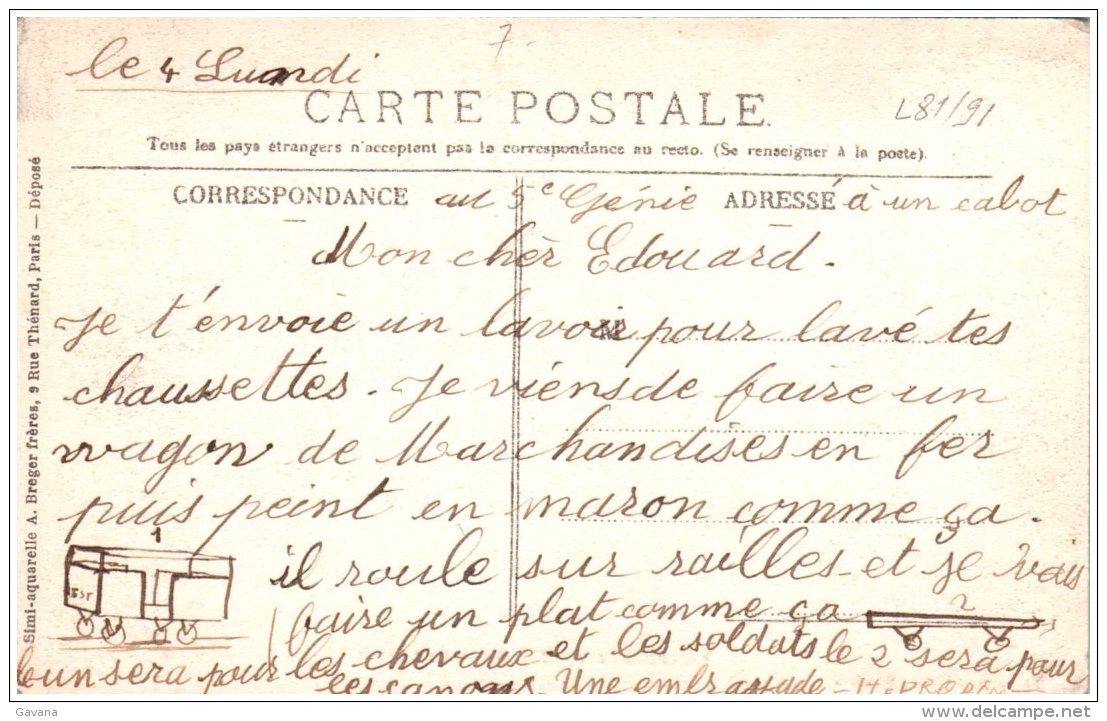 7.
le 4 Luandi
CARTE POSTALE.
L81/91
Tous les pays étrangers n'acceptent pas la correspondance au recto. (Se renseigner à la poste).
CORRESPONDANCE au 5e Génie ADRESSÉ à un cabot
Mon cher Edouard.
Je t'envoie un lavoir pour lavé tes
chaussettes. Je viens de faire un
wagon de Marchandises en fer
puis peint en maron comme ça.
1
EST
il roule sur railles et je vais
faire un plat comme ça
2
le un sera pour les chevaux et les soldats le 2 sera pour
les canons. Une embrassade
Simi-aquarelle A. Breger frères, 9 Rue Thénard, Paris — Déposé
Gavana
delcampe.net